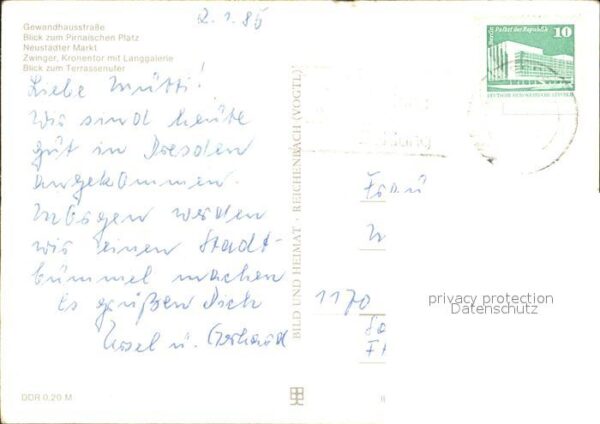 2.1.86
Gewandhausstraße
Blick zum Pirnaischen Platz
Neustädter Markt
Zwinger, Kronentor mit Langgalerie
Blick zum Terrassenufer
Liebe Mutti!
Wir sind heute
gut in Dresden
angekommen.
Morgen werden
wir einen Stadt-
bummel machen
Es grüßen Dich
Ursel u. Gerhard
DDR 0,20 M
BILD UND HEIMAT · REICHENBACH (VOGTL)
Berlin Palast der Republik
10
DEUTSCHE DEMOKRATISCHE REPUBLIK
Frau
1170
privacy protection
Datenschutz